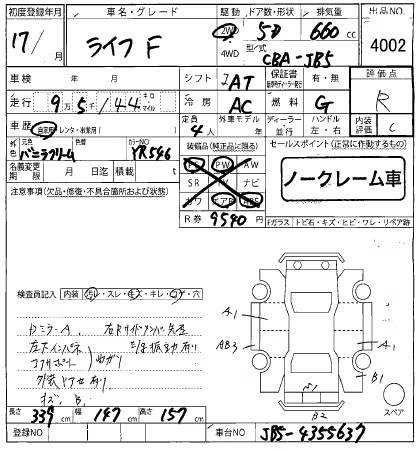 初度登録年月 車名・グレード 駆動 ドア数・形状 排気量 出品NO.
17/ 月 ライフ F 2WD 5D 660 cc 4002
4WD 型/式 CBA-JB5
車検 年 月 シフト AT 保証書 有・無 評価点
走行 9万5千/44 キロ マイル 冷房 AC 燃料 G R
車歴 自家用・レンタ・事業用( ) 定員 4人 外車モデル 年 ディーラー・並行 ハンドル 左・右 内装評価 C
外色 元色 バニラクリーム 色替 カラーNO YR546 装備品(純正品に限る) セールスポイント(正常に作動するもの)
名義変更 月 日迄 積載 t PS PW AW ノークレーム車
注意事項(欠品・修復・不具合箇所および状態) SR TV ナビ
カワ エアB ABS
R券 9540円 Fガラス トビ石・キズ・ヒビ・ワレ・リペア跡
検査員記入 内装 汚レ・スレ・キズ・キレ・コゲ・穴
A1
DミラーA
AB3 A1
左インパネ
コアサポート 曲がり B1
外装 有り
キズ、B
W1 スペア
B2
長さ 339 cm 幅 147 cm 高さ 157 cm
登録NO 車台NO JB5-4355637